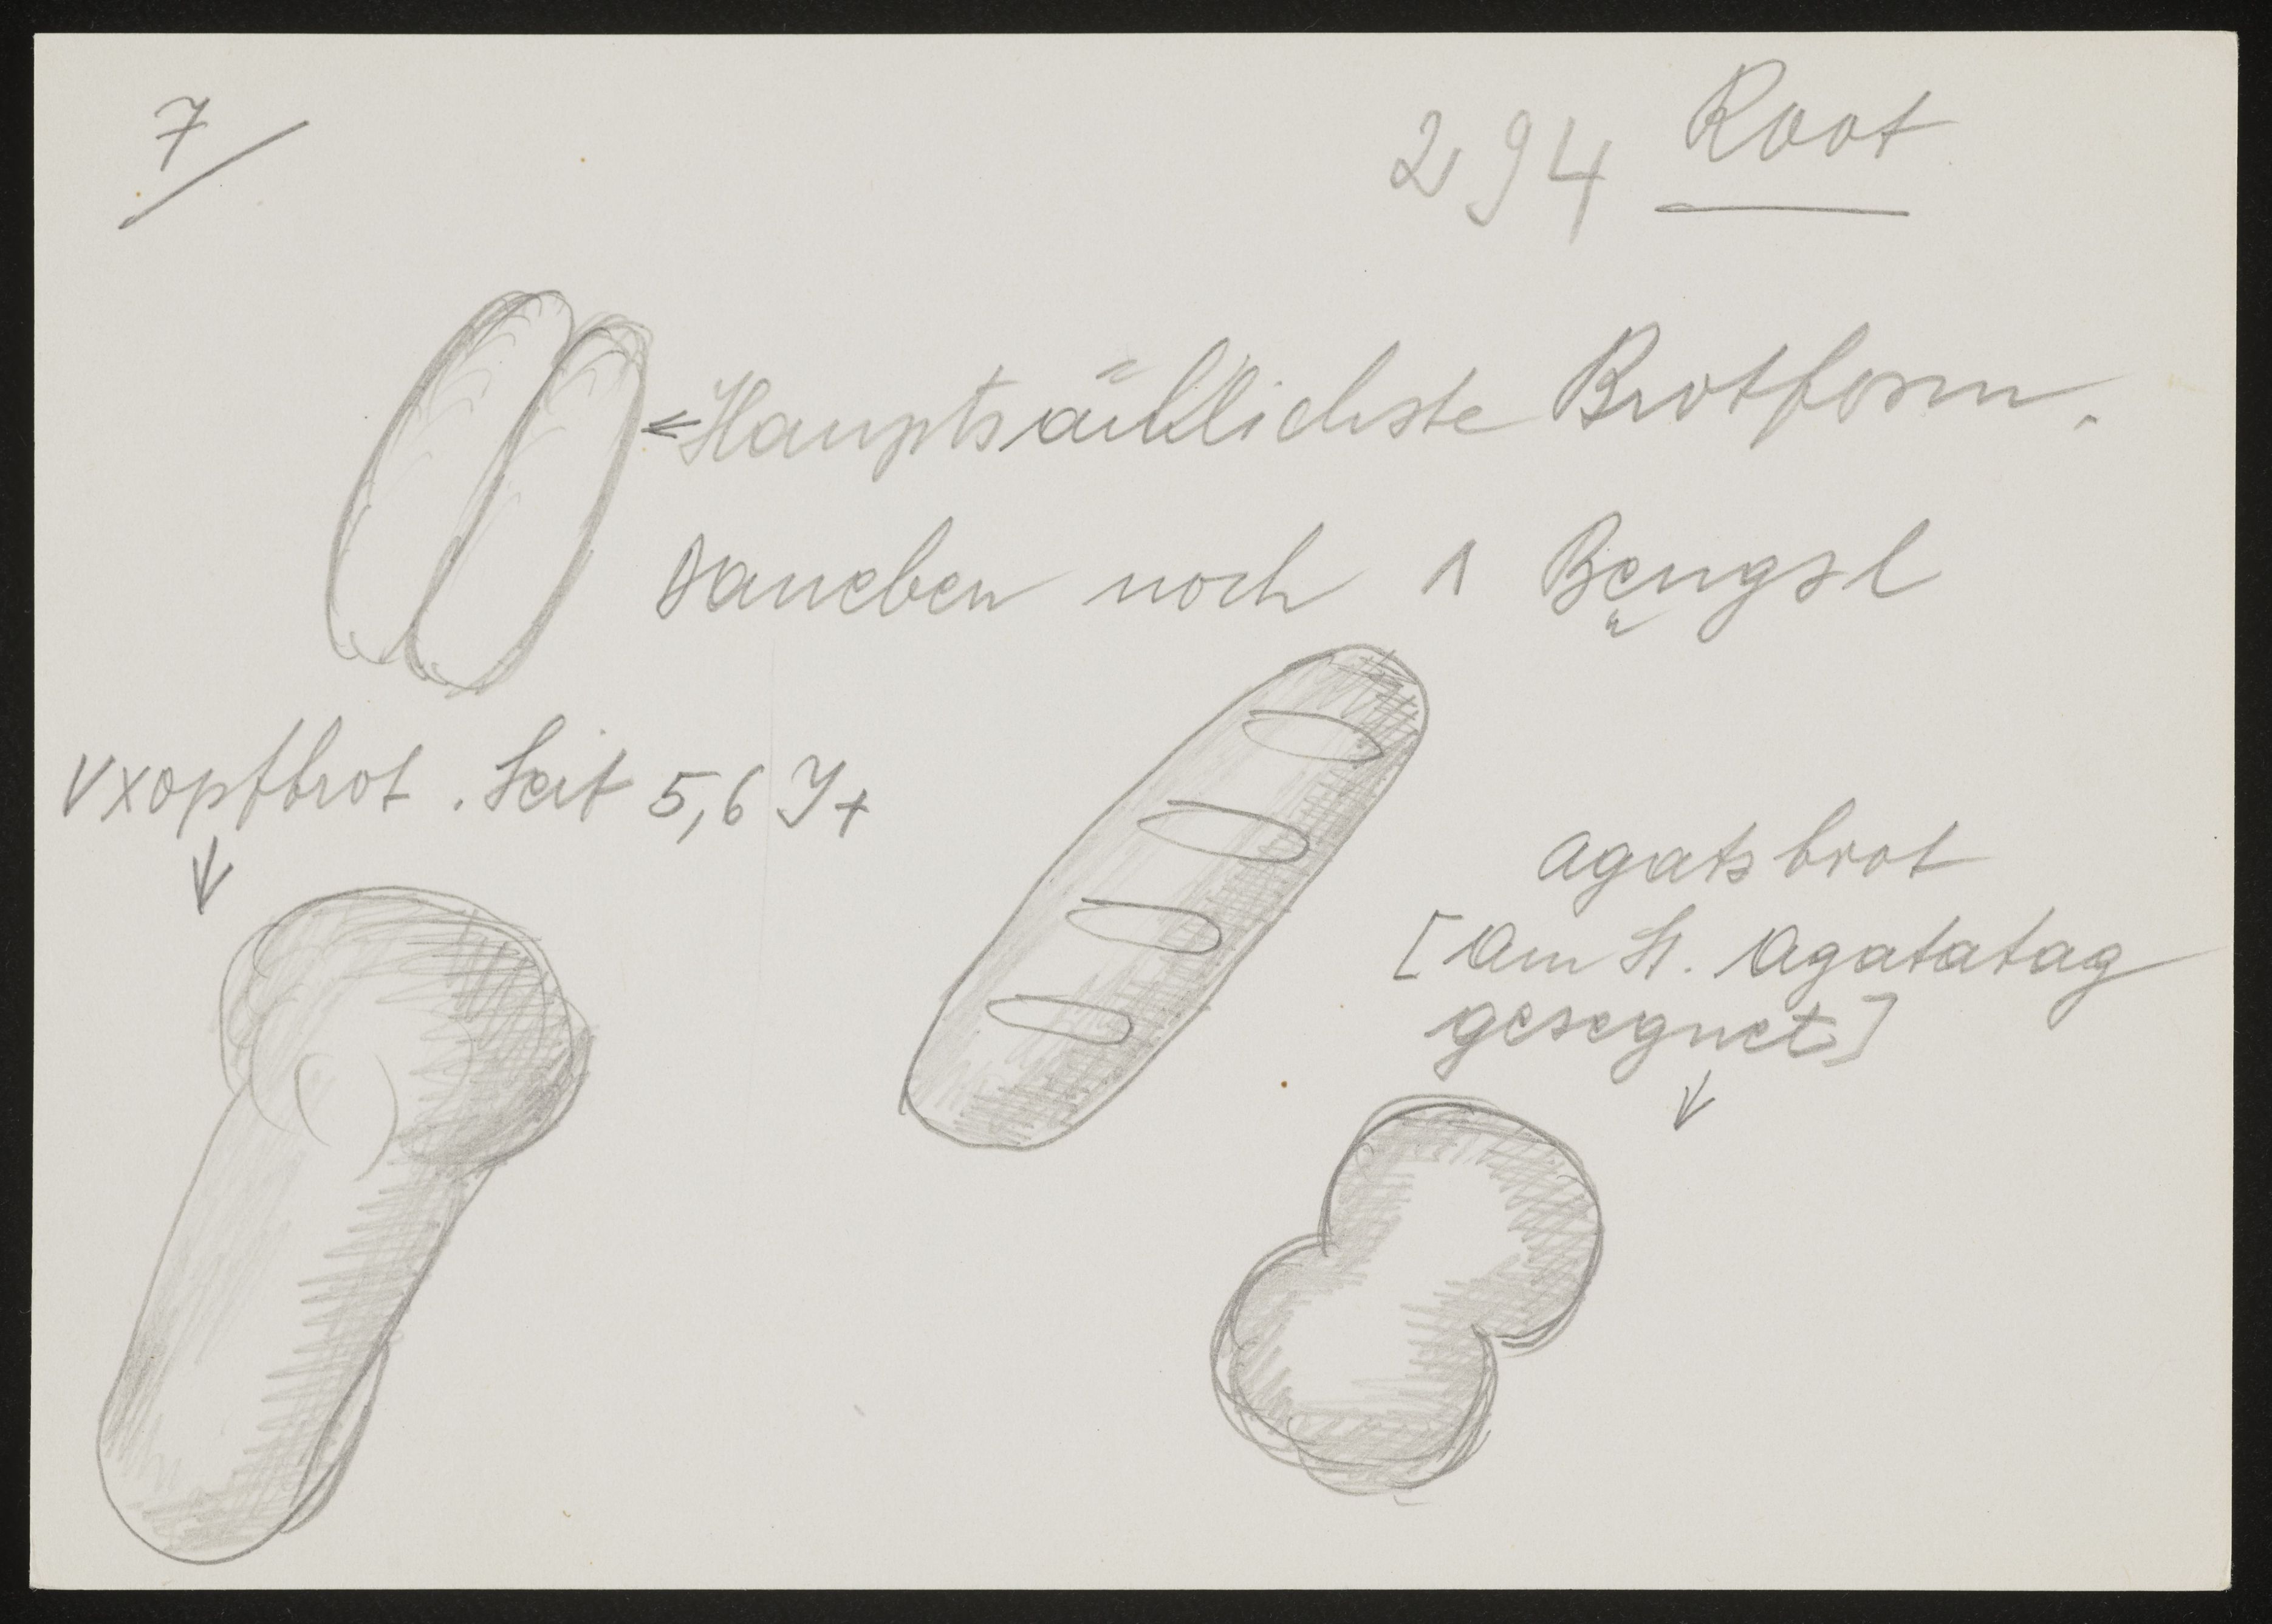 7
294 Root
Hauptsächlichste Brotform.
Daneben noch 1 Bengsl
Vxopfbrot. Seit 5,6 J+
Agatsbrot
[Am St. Agatatag
gesegnet]